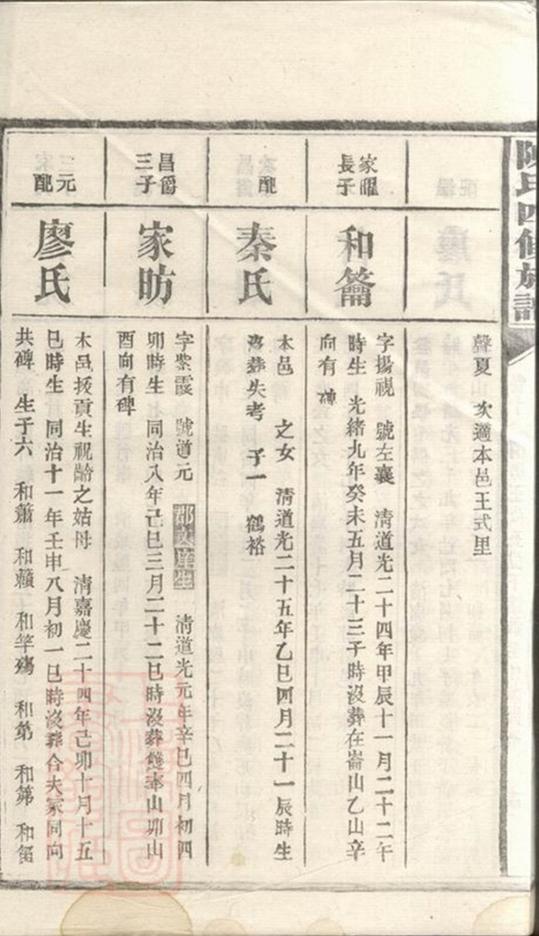 陳氏四修族譜
聲夏 次適本邑王式里
家曜長子
和籥
字揚祝 號左襄 清道光二十四年甲辰十一月二十二午
時生 光緒九年癸未五月二十三子時沒葬在崙山乙山辛
向有碑
配
秦氏
本邑 之女 清道光二十五年乙巳四月二十一辰時生
沒葬失考 子一 鶴裕
昌爵三子
家昉
字紫霞 號道元 郡庠生 清道光元年辛巳四月初四
卯時生 同治八年己巳三月二十二巳時沒葬雙 山卯山
酉向有碑
元配
廖氏
本邑拔貢生祝齡之姑母 清嘉慶二十四年己卯十月十五
巳時生 同治十一年壬申八月初一巳時沒葬合夫冢同向
共碑 生子六 和蕭 和籟 和竽殤 和第 和第 和笛